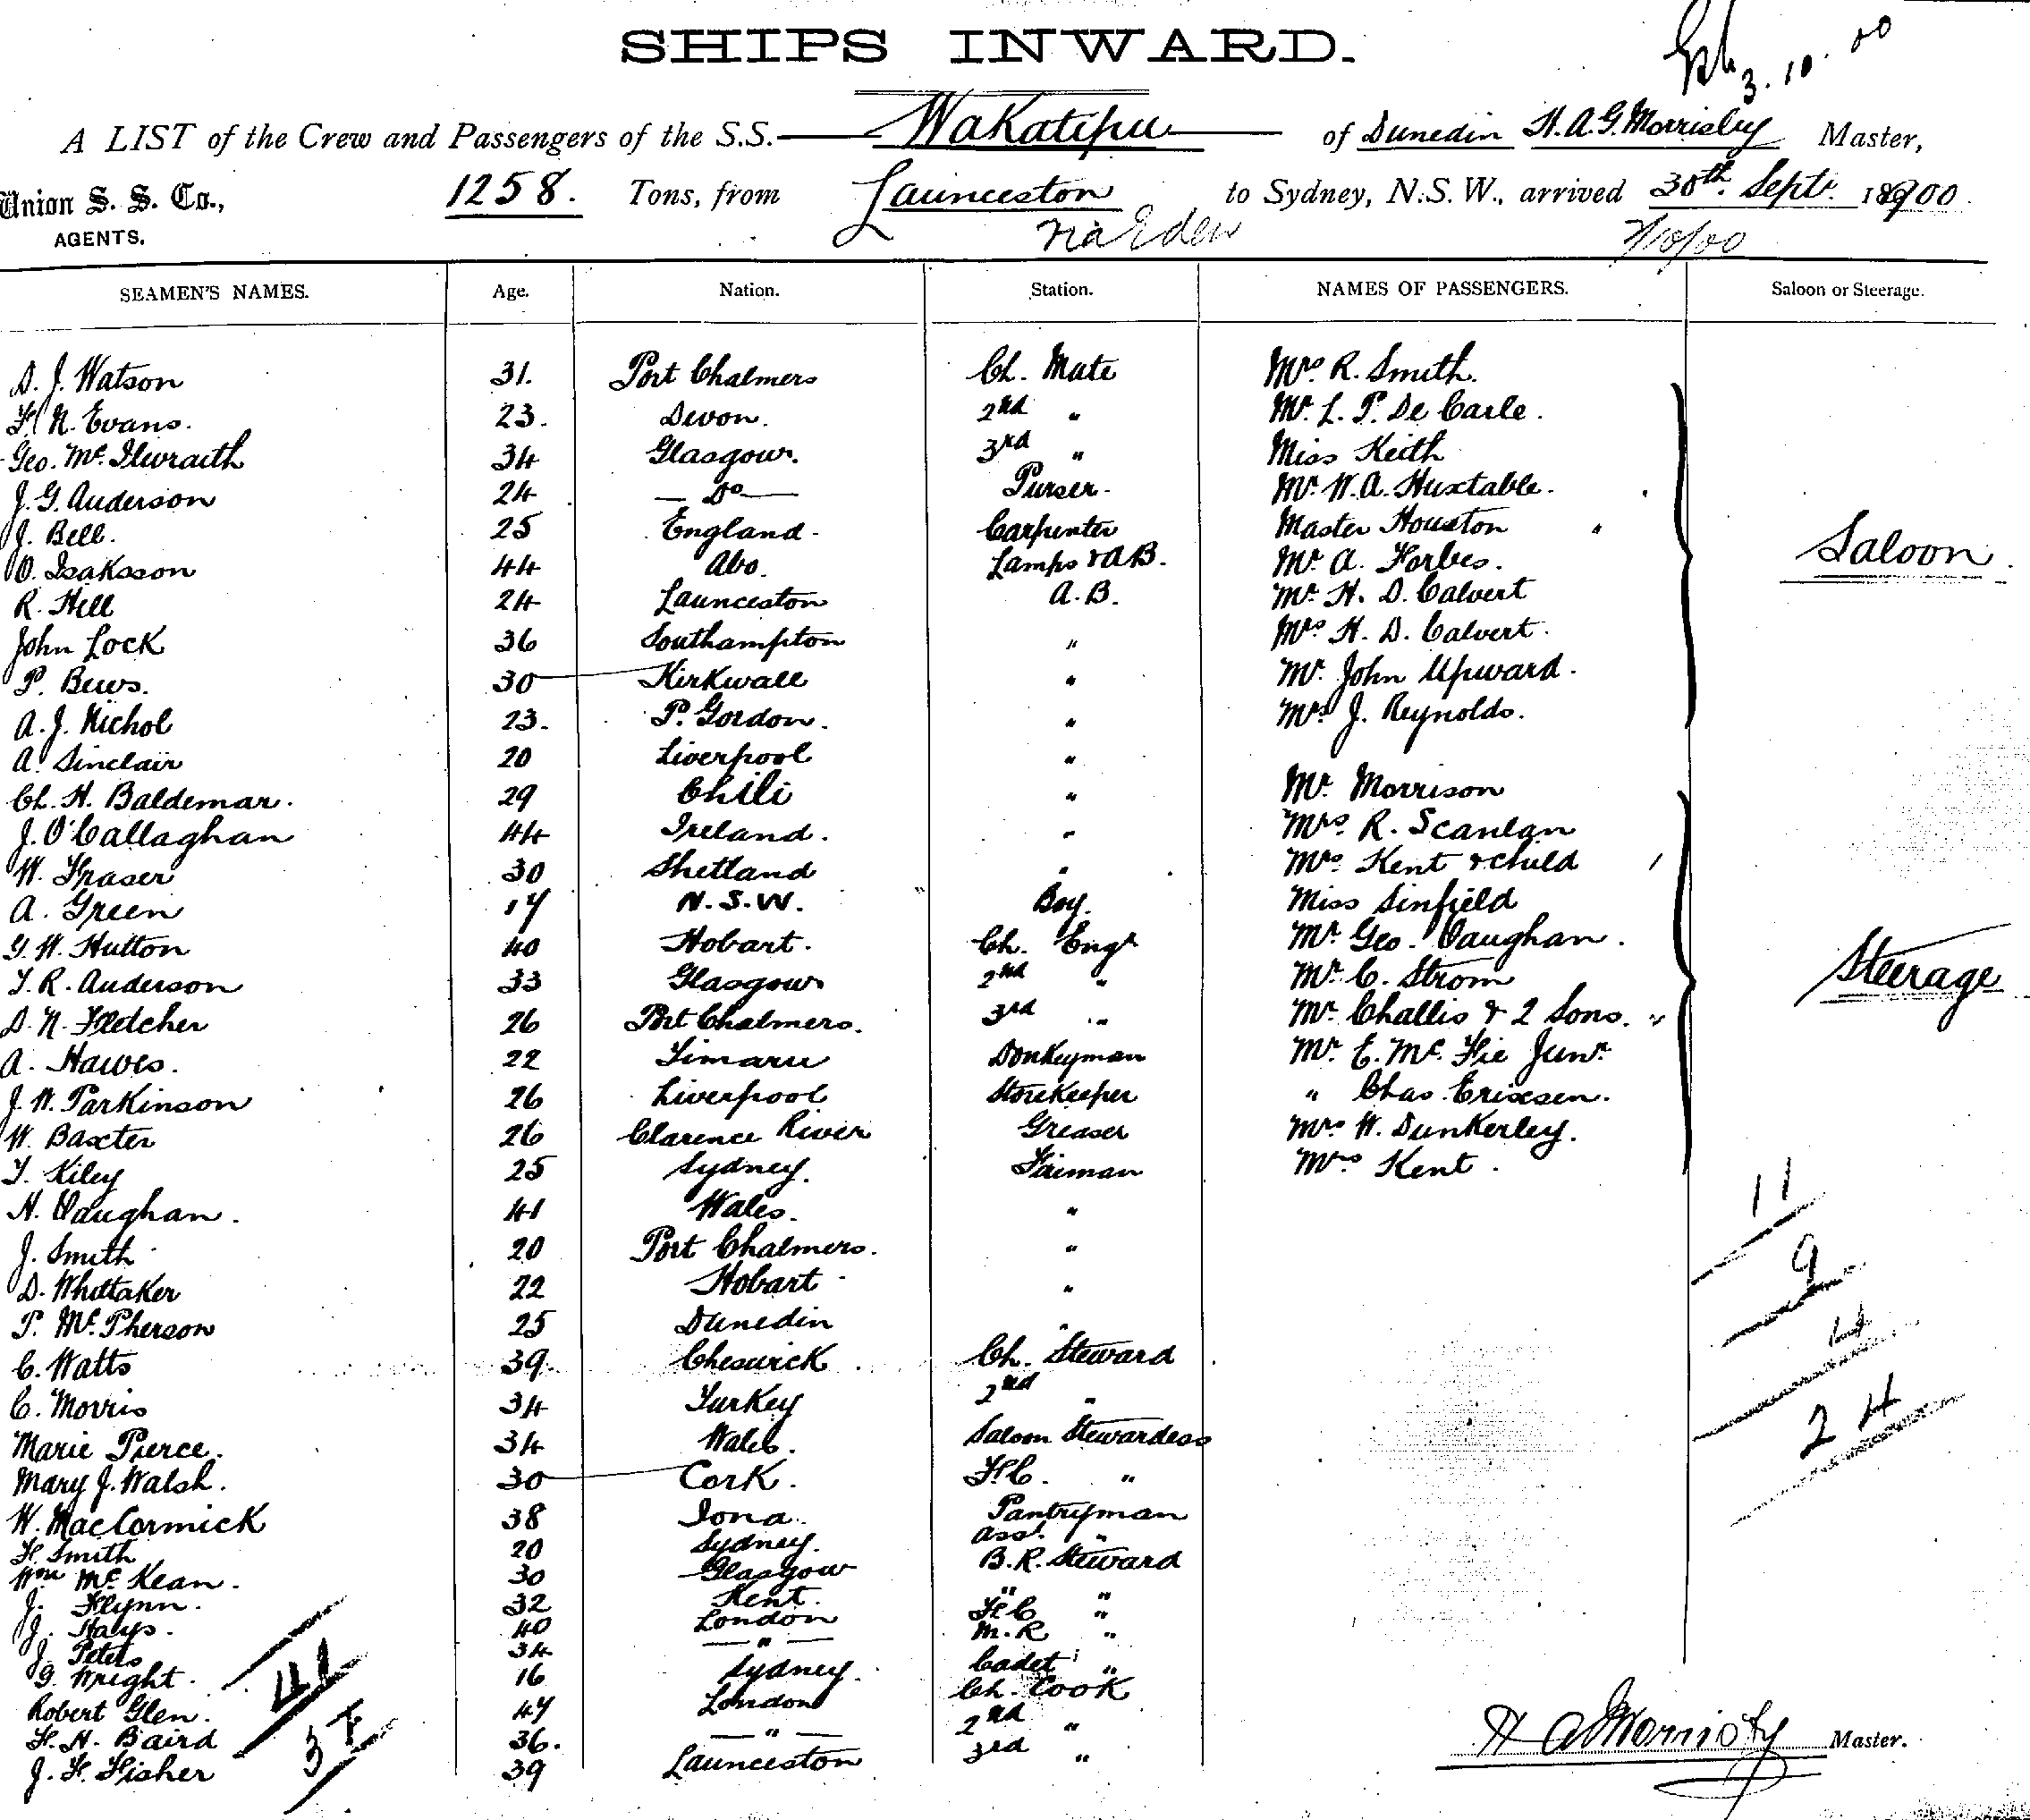 SHIPS INWARD.
3.10.00
A LIST of the Crew and Passengers of the S.S. Wakatipu of Dunedin H.A.G. Morrisby Master,
Union S. S. Co., AGENTS. 1258. Tons, from Launceston to Sydney, N.S.W., arrived 30th Sept. 1900
via Eden
2/10/00
SEAMEN'S NAMES. Age. Nation. Station. NAMES OF PASSENGERS. Saloon or Steerage.
D. J. Watson 31. Port Chalmers Ch. Mate Mrs. R. Smith.
F. N. Evans. 23. Devon. 2nd " Mr. L. P. De Carle.
Geo. Mc. Ilwraith 34 Glasgow. 3rd " Miss Keith
J. G. Anderson 24 — Do — Purser. Mr. W. A. Huxtable.
J. Bell. 25 England. Carpenter Master Houston "
O. Isaksson 44 Abo. Lamps & A.B. Mr. A. Forbes. Saloon.
R. Hill 24 Launceston A.B. Mr. H. D. Calvert
John Lock 36 Southampton " Mrs. H. D. Calvert.
P. Bews. 30 Kirkwall " Mr. John Upward.
A. J. Nichol 23. P. Gordon. " Mrs. J. Reynolds.
A. Sinclair 20 Liverpool "
Ch. H. Baldemar. 29 Chili " Mr. Morrison
J. O'Callaghan 44 Ireland. " Mrs. R. Scanlan
W. Fraser 30 Shetland " Mrs. Kent & child
A. Green 17 N.S.W. Boy. Miss Sinfield
G. W. Hutton 40 Hobart. Ch. Engr Mr. Geo. Vaughan.
T. R. Anderson 33 Glasgow 2nd " Mr. C. Strom Steerage
D. N. Fletcher 26 Port Chalmers. 3rd " Mr. Challis & 2 Sons. "
A. Hawes. 22 Timaru Donkeyman Mr. E. Mc. Fie Junr.
J. W. Parkinson 26 Liverpool Storekeeper " Chas. Ericksen.
W. Baxter 26 Clarence River Greaser Mrs. W. Dunkerley.
T. Kiley 25 Sydney. Faiman Mrs. Kent.
H. Vaughan. 41 Wales. " 11
J. Smith 20 Port Chalmers. " 9
D. Whittaker 22 Hobart "
P. Mc. Pherson 25 Dunedin " 4
C. Watts 39. Cheswick Ch. Steward
C. Morris 34 Turkey 2nd " 24
Marie Pierce. 34 Wales. Saloon Stewardess
Mary J. Walsh. 30 Cork. F.C. "
W. MacCormick 38 Iona. Pantryman
F. Smith 20 Sydney. Asst. "
Wm Mc. Kean. 30 Glasgow B.R. Steward
J. Flynn. 32 Kent. " "
J. Hays. 40 London F.C "
J. Peters 34 — " — M.R "
G. Wright. 16 Sydney. Cadet "
Robert Glen. 47 London Ch. Cook
F. H. Baird 36. — " — 2nd "
J. F. Fisher 39 Launceston 3rd "
41
H A G Morrisby Master.